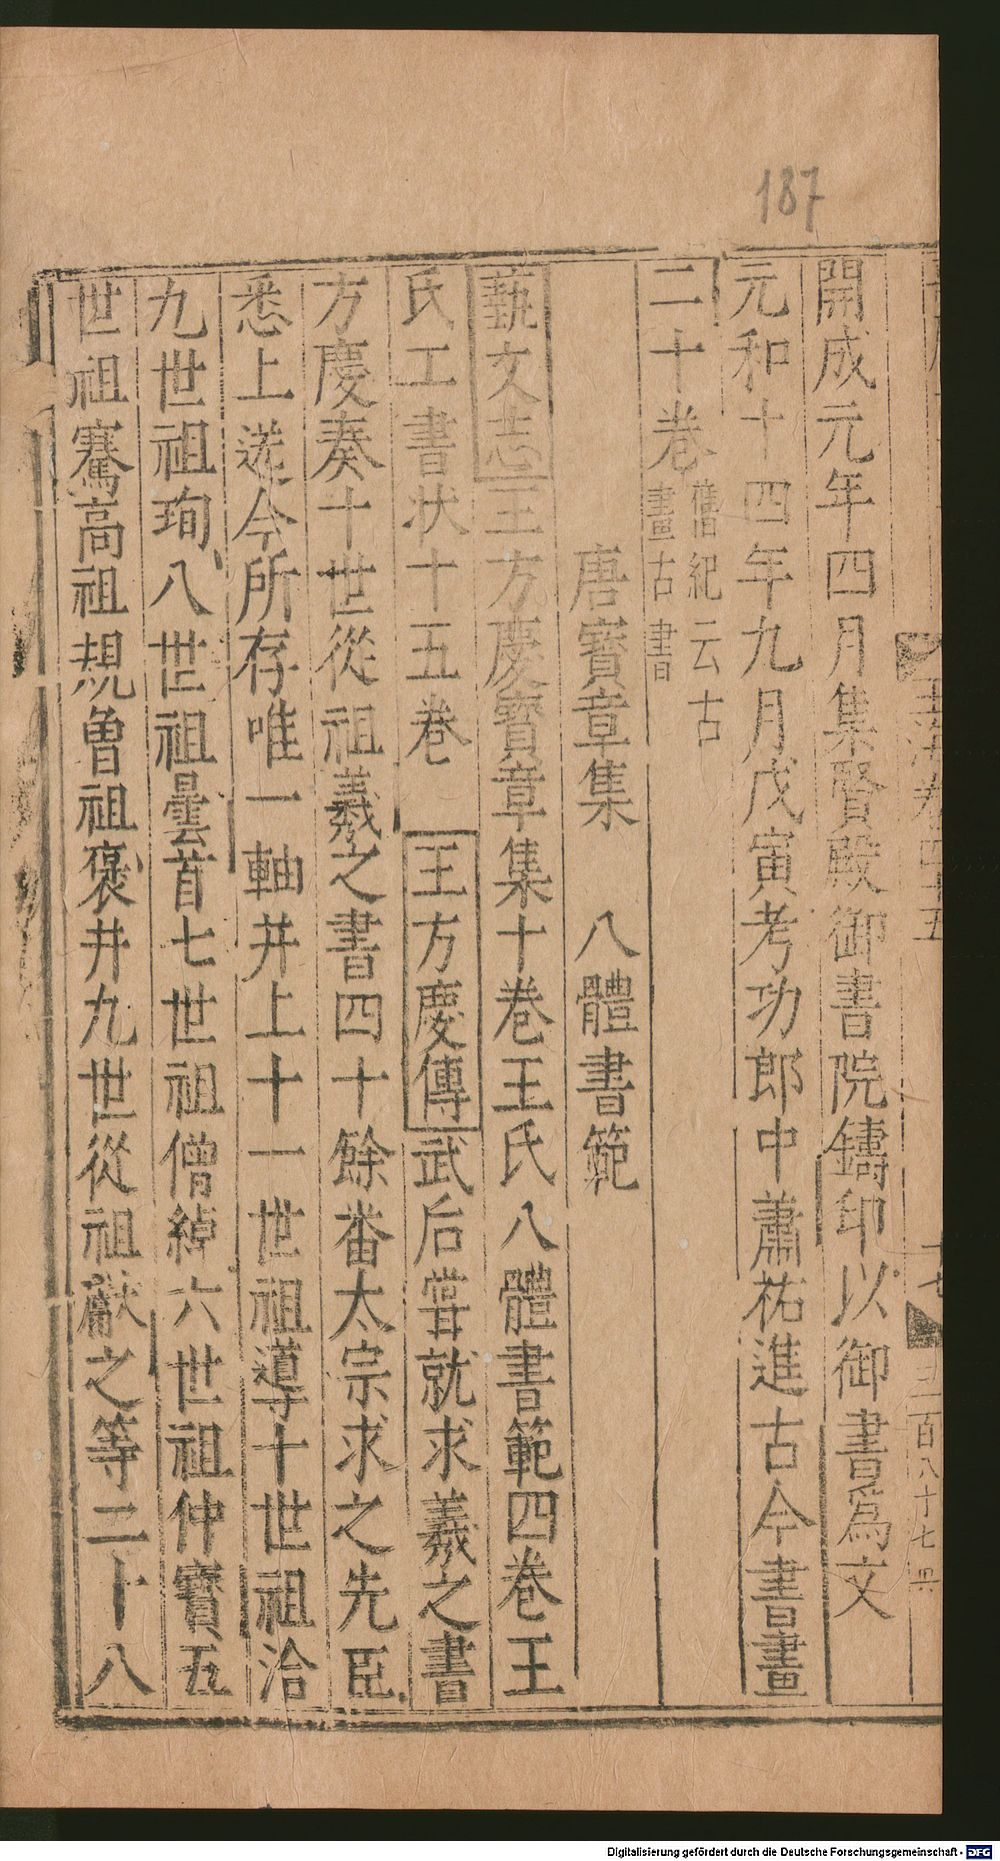 187
玉海卷四十五
開成元年四月集賢殿御書院鑄印以御書爲文
元和十四年九月戊寅考功郎中蕭祐進古今書畫
二十卷舊紀云古畫古書
唐寶章集　八體書範
藝文志王方慶寶章集十卷王氏八體書範四卷王
氏工書狀十五卷　王方慶傳武后嘗就求羲之書
方慶奏十世從祖羲之書四十餘番太宗求之先臣
悉上送今所存唯一軸并上十一世祖導十世祖洽
九世祖珣八世祖曇首七世祖僧綽六世祖仲寶五
世祖騫高祖規曾祖褒并九世從祖獻之等二十八
Digitalisierung gefördert durch die Deutsche Forschungsgemeinschaft - DFG